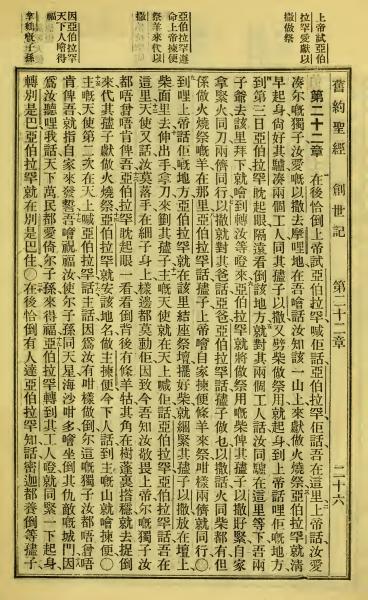 上帝試亞伯
拉罕愛獻以
撒做祭
亞伯拉罕遵
命上帝揀便
祭羊來代以
撒
因亞伯拉罕
天下人噲得
福
拿鶴嘅子孫
舊約聖經 創世記 第二十二章 二十六
第二十二章 在後恰倒上帝試亞伯拉罕喊佢話亞伯拉罕佢話吾在這里上帝話汝愛
凑尔嘅獨子汝愛嘅以撒去摩哩地在吾噲話汝知該一山上來獻做火燒祭亞伯拉罕就清
早起身偹好其驢凑兩個工人同其孻子以撒又劈柴做祭用就起身到上帝話哩佢嘅地方
到第三日亞伯拉罕眈起眼隔遠看倒該地方就對其兩個工人話汝同驢在這里等下吾兩
子爺去該里拜下就噲到轉汝等嚟來亞伯拉罕就將做祭用嘅柴俾其孻子以撒孖緊自家
拿緊火同刀兩儕同行以撒就對其爸話亞爸亞伯拉罕話孻子做乜以撒話火同柴都有但
係做火燒祭嘅羊在那里亞伯拉罕話孻子上帝噲自家揀便條羊來祭咁樣兩儕就同行〇
到哩上帝話佢嘅地方亞伯拉罕就在該里結座祭壇擺好柴就綑緊其孻子以撒放在壇上
柴面上去伸出手拿刀來劉其孻子主嘅天使就在天上喊佢話亞伯拉罕亞伯拉罕話吾在
這里天使又話汝莫落手在細子身上樣邊都莫動佢因致今吾知汝敬畏上帝尔嘅獨子汝
都唔曾唔肯俾吾亞伯拉罕眈起眼一看看倒背後有條羊牯其角在樹蓬裏搭穩就去捉倒
來代其孻子獻做火燒祭亞伯拉罕就安該地名做主揀便今下人話到主嘅山就噲揀便〇
主嘅天使第二次在天上喊亞伯拉罕話主話因爲汝有咁樣做倒尔這嘅獨子汝都唔曾唔
肯俾吾就指自家來發誓吾噲祝福汝使尔子孫同天星海沙咁多噲坐倒其仇敵嘅城門因
爲汝聽哩我話天下萬民都愛倚尔子孫來得福亞伯拉罕轉到其工人嗰就同緊一下起身
轉別是巴亞伯拉罕就在別是巴住〇在後恰倒有人達亞伯拉罕知話密迦都養倒等孻子